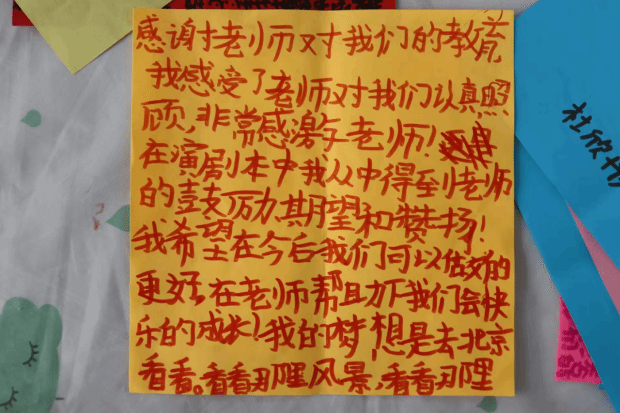 感谢老师对我们的教育
我感受了老师对我们认真照
顾,非常感激老师!
在演剧本中我从中得到老师
的鼓励,期望和赞扬!
我希望在今后我们可以做的
更好,在老师帮助下我们会快
乐的成长!我的梦想是去北京
看看。看看那哩风景,看看那哩
杜欣